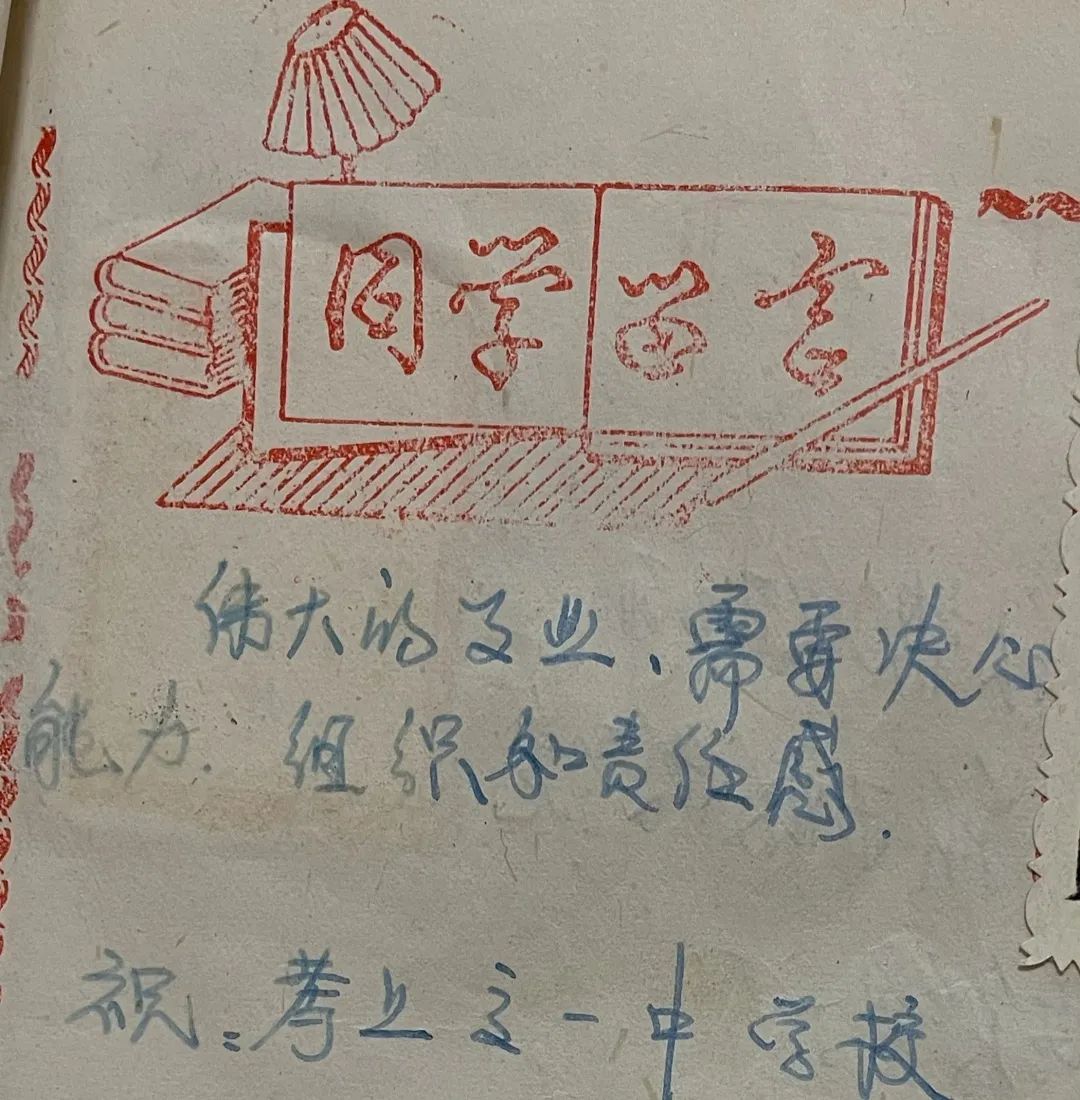 同学留言
伟大的事业、需要决心
能力.组织和责任感.
祝:考上一中学校